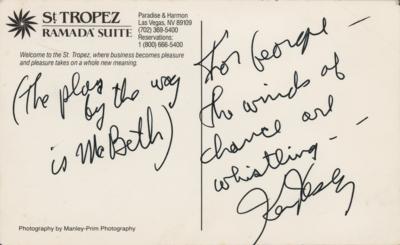 St TROPEZ
RAMADA SUITE
Paradise & Harmon
Las Vegas, NV 89109
(702) 369-5400
Reservations:
1 (800) 666-5400
Welcome to the St. Tropez, where business becomes pleasure
and pleasure takes on a whole new meaning.
(The play
by the way
is McBeth)
For George –
the winds of
chance are
whistling –
Ken Kesey
Photography by Manley-Prim Photography